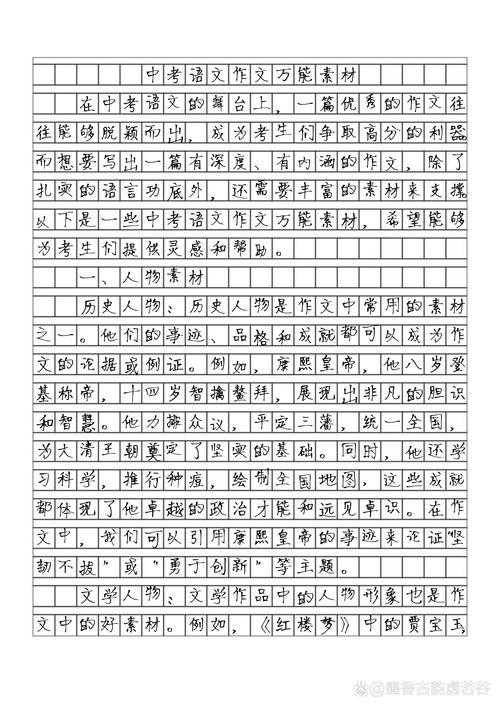 中考语文作文万能素材
在中考语文的舞台上，一篇优秀的作文往
往能够脱颖而出，成为考生们争取高分的利器
而想要写出一篇有深度、有内涵的作文，除了
扎实的语言功底外，还需要丰富的素材来支撑
以下是一些中考语文作文万能素材，希望能够
为考生们提供灵感和帮助。
一、人物素材
历史人物：历史人物是作文中常用的素材
之一。他们的事迹、品格和成就都可以成为作
文的论据或例证。例如，康熙皇帝，他八岁登
基称帝，十四岁智擒鳌拜，展现出非凡的胆识
和智慧。他力摊众议，平定三藩，统一全国，
为大清王朝奠定了坚实的基础。同时，他还学
习科学，推行种痘，绘制全国地图，这些成就
都体现了他卓越的政治才能和远见卓识。在作
文中，我们可以引用康熙皇帝的事迹来论证“坚
韧不拔”或“勇于创新”等主题。
文学人物：文学作品中的人物形象也是作
文中的好素材。例如，《红楼梦》中的贾宝玉，
@囍晋古韵虚若谷